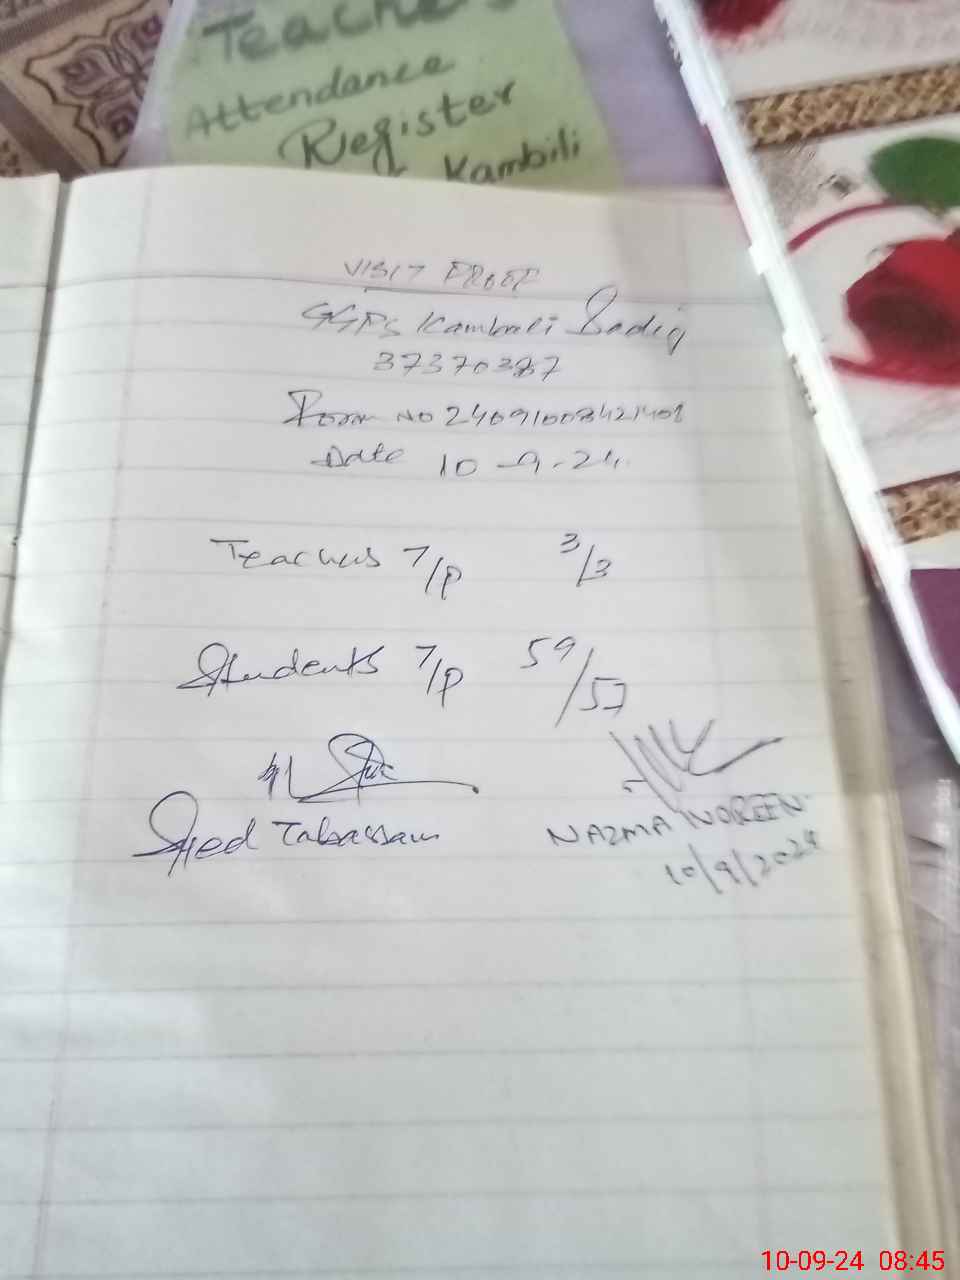 Teacher
Attendance
Register
Kambili
VISIT PROOF
GGPS Kambali Sadiq
37370387
Form NO 24091008421408
Date 10-9-24.
Teachers T/P 3/3
Students T/P 59/57
Syed Tabassam
NAZMA NOREEN
10/9/2024
10-09-24 08:45